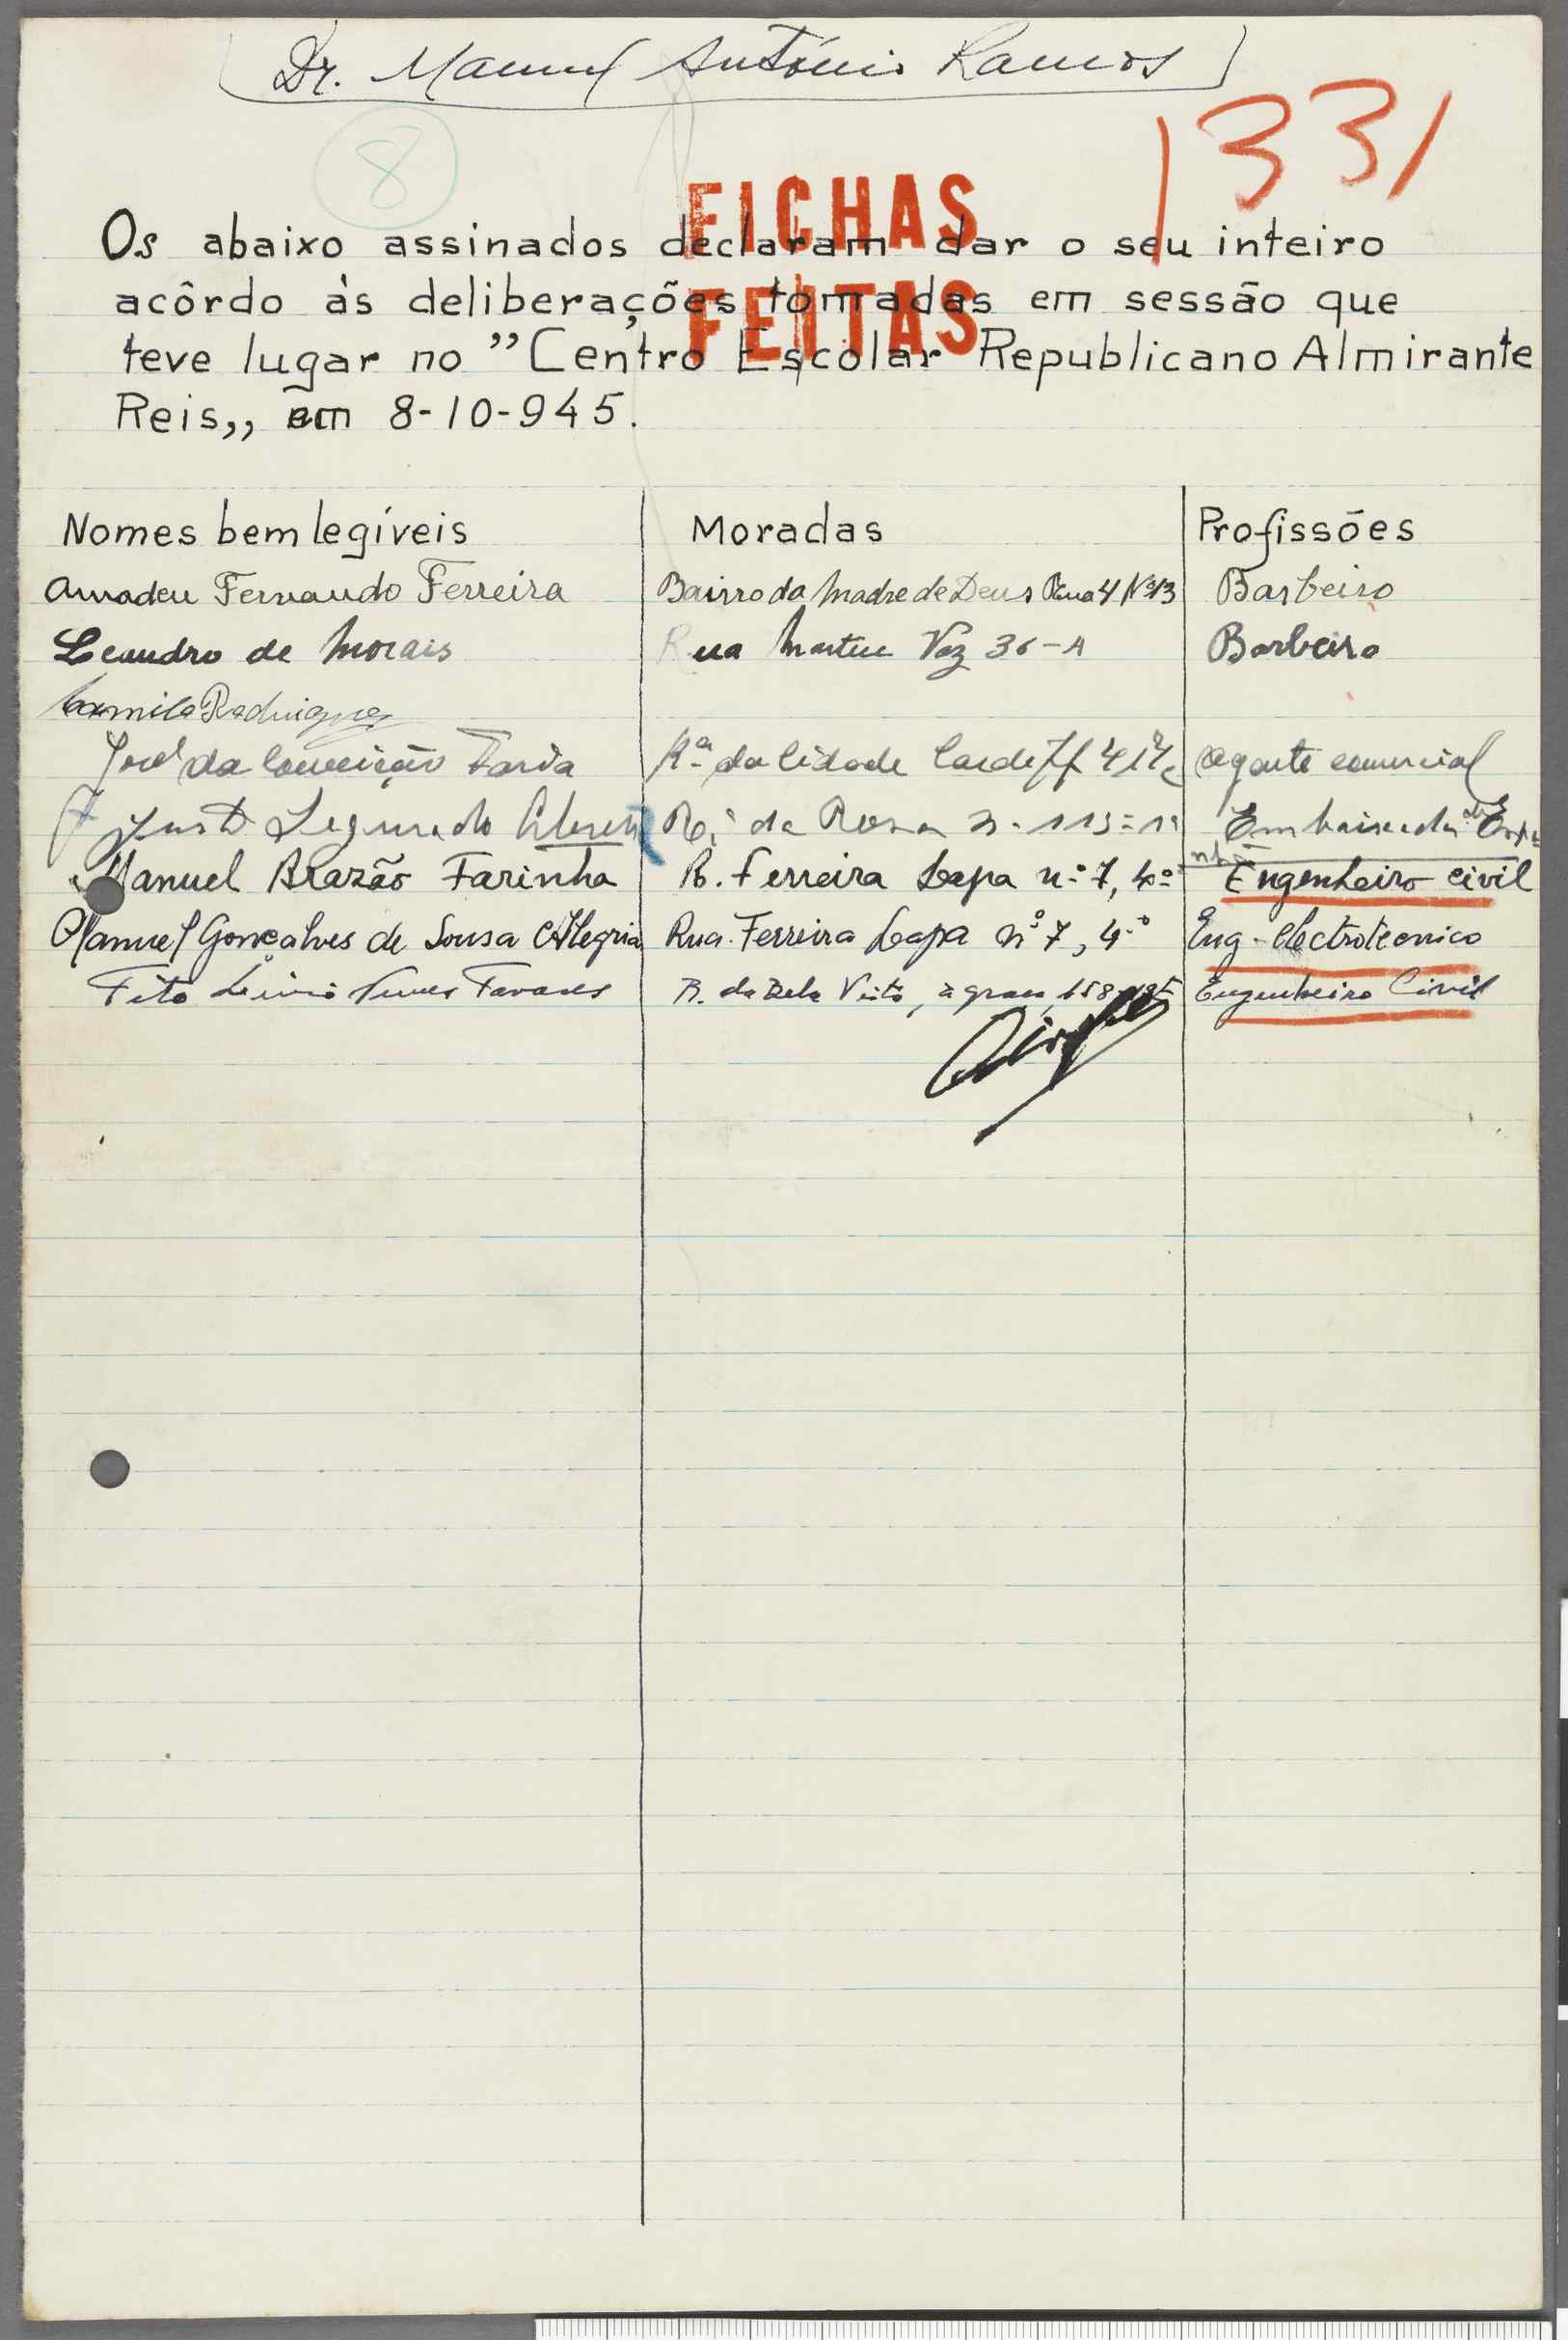 Dr. Manuel António Ramos
8
1331
FICHAS
FEITAS
Os abaixo assinados declaram dar o seu inteiro
acôrdo às deliberações tomadas em sessão que
teve lugar no "Centro Escolar Republicano Almirante
Reis,, em 8-10-945.
Nomes bem legíveis Moradas Profissões
Amadeu Fernando Ferreira Bairro da Madre de Deus Rua 4 Nº 13 Barbeiro
Leandro de Morais Rua Vaz 36-A Barbeiro
Camilo Rodrigues
José da Conceição Faria Rª da Cidade Cardiff agente comercial
Justo Segurado R. da Rosa 113-1º Embaixada de
Manuel Brazão Farinha R. Ferreira Lapa nº 7, 4º Engenheiro civil
Manuel Gonçalves de Sousa Alegria Rua Ferreira Lapa nº 7, 4º Eng. electrotecnico
Tito Livio Nunes Tavares R. da Bela Vista, à Graça, 158 Engenheiro Civil